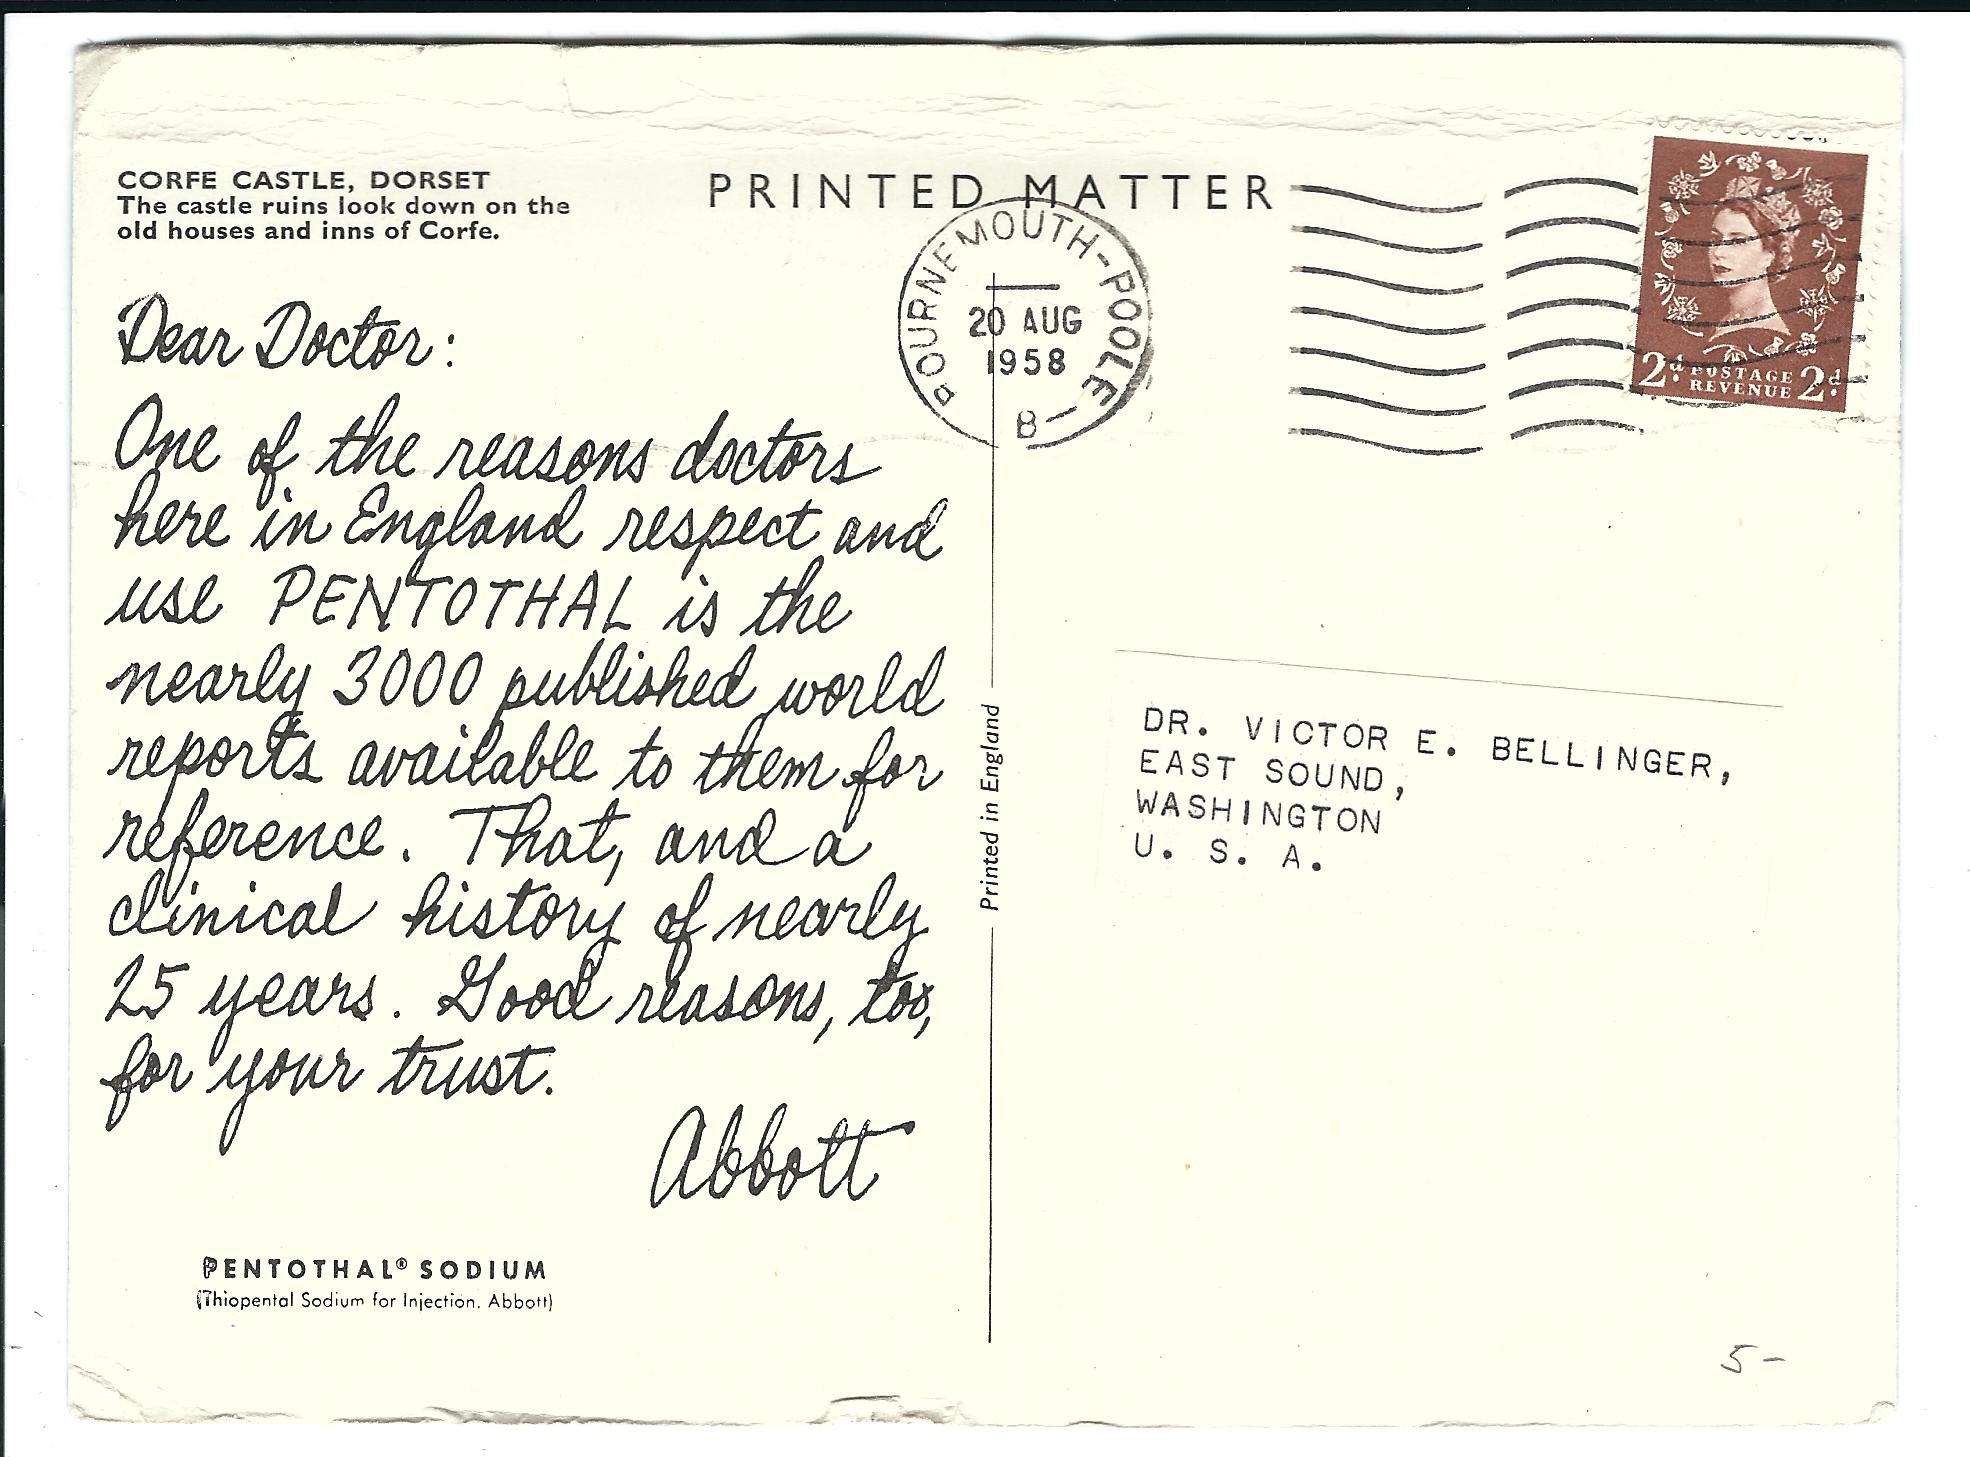 CORFE CASTLE, DORSET
The castle ruins look down on the
old houses and inns of Corfe.
Dear Doctor:
One of the reasons doctors
here in England respect and
use PENTOTHAL is the
nearly 3000 published world
reports available to them for
reference. That, and a
clinical history of nearly
25 years. Good reasons, too,
for your trust.
Abbott
PENTOTHAL® SODIUM
(Thiopental Sodium for Injection, Abbott)
Printed in England
PRINTED MATTER
BOURNEMOUTH-POOLE
20 AUG
1958
B
2d. POSTAGE 2d.
REVENUE
DR. VICTOR E. BELLINGER,
EAST SOUND,
WASHINGTON
U. S. A.
5-